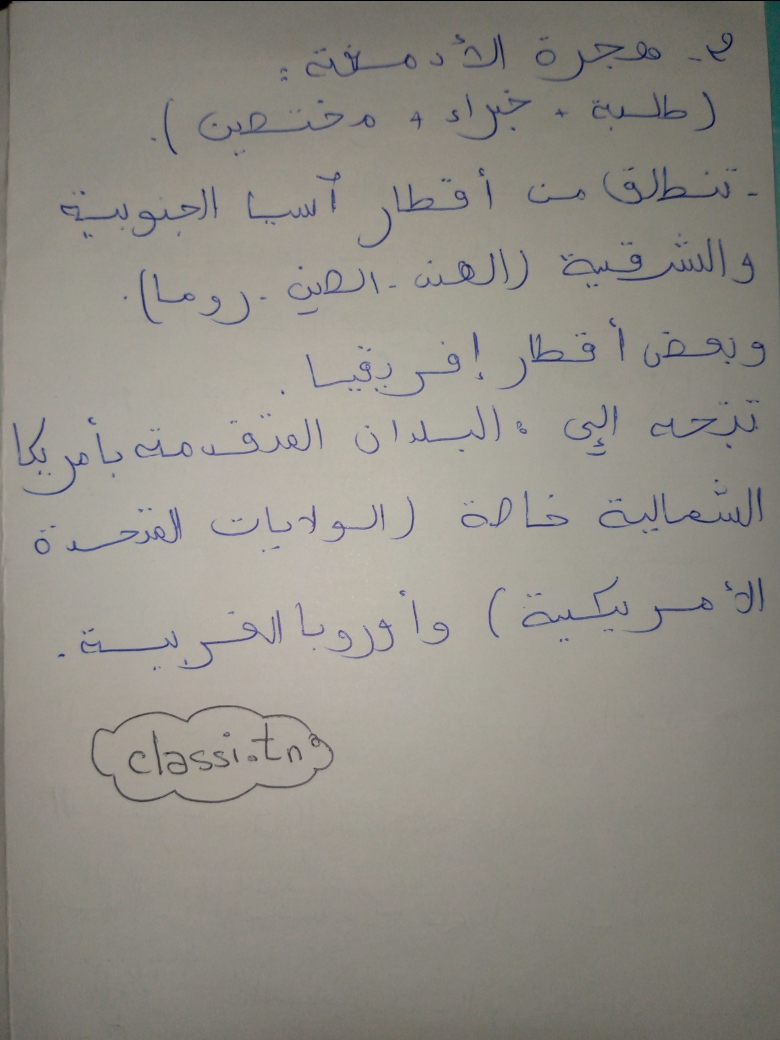 و- هجرة الأدمغة :
(طلبة + خبراء + مختصين).
- تنطلق من أقطار آسيا الجنوبية
والشرقية (الهند - الصين - روما).
وبعض أقطار إفريقيا.
تتجه إلى : البلدان المتقدمة بأمريكا
الشمالية خاصة (الولايات المتحدة
الأمريكية) وأوروبا الغربية.
classi.tn